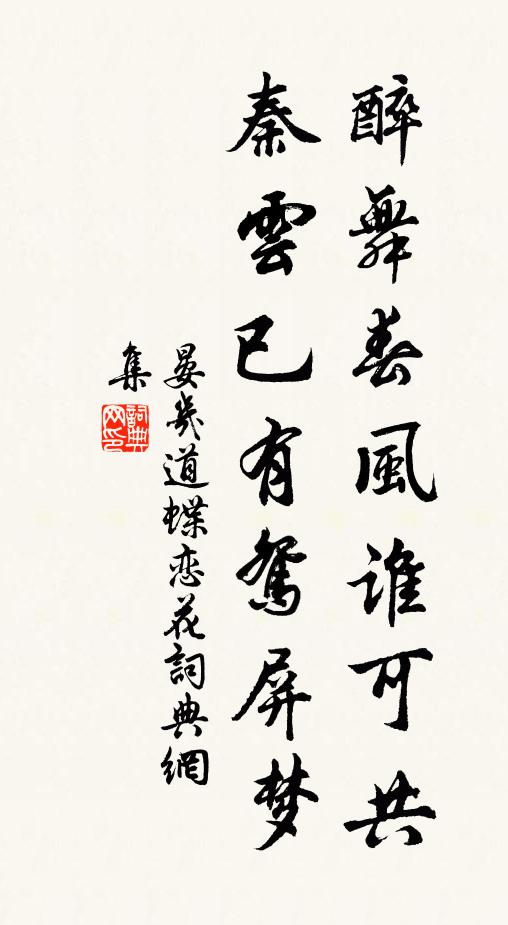 醉舞春風誰可共
秦雲已有鴛屏梦
晏幾道蝶恋花詞典網
集
詞典
网印